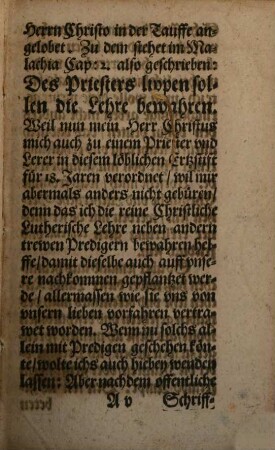 Herrn Christo in der Tauffe an-
gelobet. Zu dem stehet im Ma-
lachia Cap: 2. also geschrieben:
Des Priesters lippen sol-
len die Lehre bewahren.
Weil nun mein Herr Christus
mich auch zu einem Priester vnd
Lerer in diesem löblichen Ertzstift
für 18. Jaren verordnet / wil mir
abermals anders nicht gebüren /
denn das ich die reine Christliche
Lutherische Lehre neben andern
trewen Predigern bewahren hel-
ffe / damit dieselbe auch auff vnse-
re nachkommen gepflantzet wer-
de / allermassen wie sie vns von
vnsern lieben vorfahren vertra-
wet worden. Wenn nu solchs al-
lein mit Predigen geschehen kön-
te / wolte ichs auch hiebey wenden
lassen: Aber nachdem öffentliche
A v Schriff-